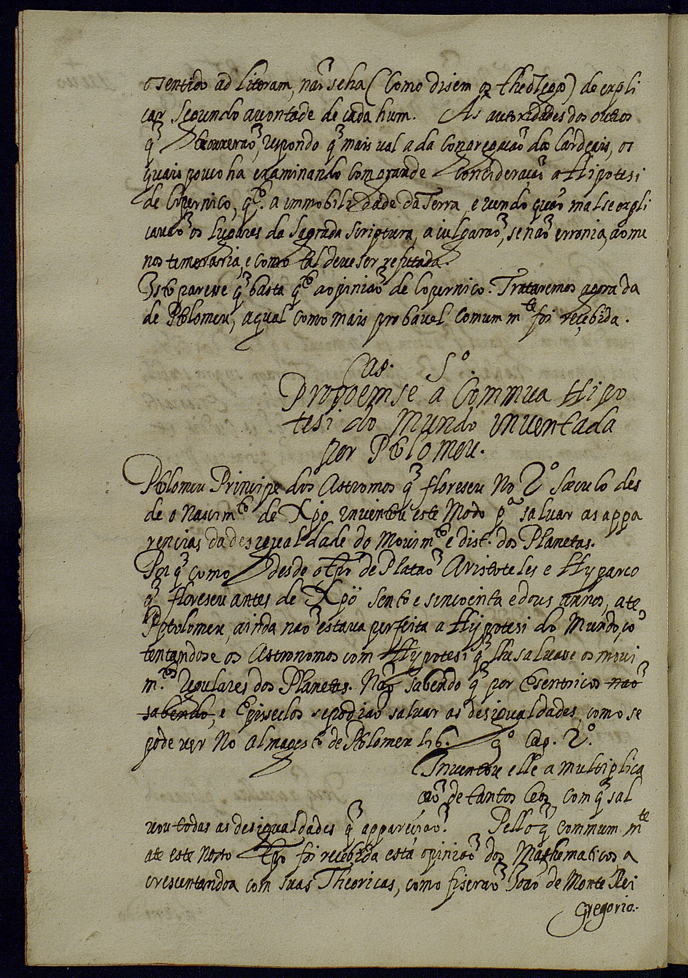 o sentido ad literam, não se ha (Como disem os theologos) de expli
car segundo a vontade de cada hum. As autoridades dos outros
q̃ trouxerão, respondo q̃ mais val a da Congregação dos Cardeais, os
quais pouco ha examinando com grande concideração a Hipotesi
de Copernico, q.to a immobilidade da Terra e vendo quão mal se expli
cavão os lugares da Sagrada Scriptura, a julgarão, se não erronia, ao me
nos temeraria, e como tal deve ser refutada.
Isto parece q̃ basta q.to a opinião de Copernico. Trataremos agora da
de Ptolomeu, a qual como mais probavel comum m.te foi recebida.
Cap. 5º
Propoemse a Commua Hipo
tesi do Mundo inventada
por Ptolomeu.
Ptolomeu Principe dos Astromos q̃ floreseu no 2º Sæculo des
de o Nascim.to de Xpo, inventou este Modo p.a salvar as appa
rencias da desigualdade do Movim.to e dist. dos Planetas.
Por q̃ como desde o tpo de Platão Aristoteles e Hyparco
q̃ floreseu antes de Xpo sento e sincoenta e dous annos, ate
Ptolomeu, ainda não estava perfeita a Hypotesi do Mundo, co
tentandose os Astronomos com Hypotesi q̃ lhe salvase os movi
m.tos regulares dos Planetas. Não sabendo q̃ por Esentricos não
sabendo, e Episeclos se podião salvar as desigualdades, como se
pode ver no Almagesto de Ptolomeu lib. 9º Cap. 2º.
Inventou elle a multiplica
ção de tantos Ceos com q̃ sal
vou todas as desigualdades q̃ apparecião. Pello q̃ commum m.te
ate este nosso tpo foi recebida esta opinião dos Mathematicos a
crescentandoa com suas Theoricas, como fiserão João de Monte Rei
Gregorio.